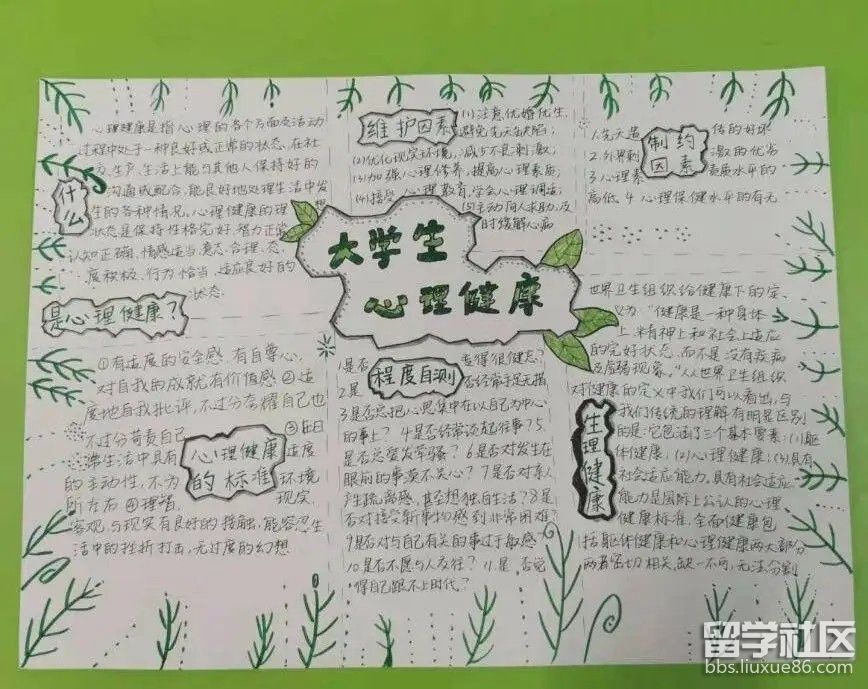 大学生
心理健康
什么
是心理健康？
心理健康是指心理的各个方面及活动
过程中处于一种良好或正常的状态，在社
交、生产、生活上能与其他人保持好的
沟通或配合，能良好地处理生活中发
生的各种情况。心理健康的理
状态是保持性格完好、智力正常
认知正确、情感适当、意志合理、态
度积极、行为恰当、适应良好的
状态.
维护因素
(1)注意优婚优生,
避免先天缺陷;
(2)优化现实环境,减少不良刺激;
(3)加强心理修养,提高心理素质;
(4)接受心理教育,学会心理调适;
(5)主动向人求助,及
时缓解心病
制约
因素
1.先天遗 传的好坏
2.外界刺 激的优劣
3 心理素 素质水平的
高低 4 心理保健水平的有无
心理健康
的标准
①有适度的安全感,有自尊心,
对自我的成就有价值感 ②适
度地自我批评,不过分夸耀自己也
不过分苛责自己
③在日
常生活中具有 适度
的主动性,不为 环境
所左右 ④理智, 现实,
客观,与现实有良好的接触,能容忍生
活中的挫折打击,无过度的幻想
程度自测
1.是否 变得很健忘?
2是 否经常手足无措
3是否总把心思集中在以自己为中心
的事上? 4是否经常谈起往事? 5
是否总爱发牢骚? 6是否对发生在
眼前的事漠不关心? 7是否对亲人
产生疏离感,甚至想独自生活? 8是
否对接受新事物感到非常困难?
9是否对与自己有关的事过于敏感
10是否不愿与人交往? 11是否觉
得自己跟不上时代?
生理健康
世界卫生组织给健康下的定
义为“健康是一种身体
上、精神上和社会上适应
的完好状态,而不是没有疾病
及虚弱现象。”从世界卫生组织
对健康的定义中我们可以看出,与
我们传统的理解有明显区别
的是,它包涵了三个基本要素:(1)躯
体健康;(2)心理健康;(3)具有
社会适应能力。具有社会适应
能力是国际上公认的心理
健康标准,全面健康包
括躯体健康和心理健康两大部分
两者密切相关,缺一不可,无法分割
留学社区
bbs.liuxue86.com